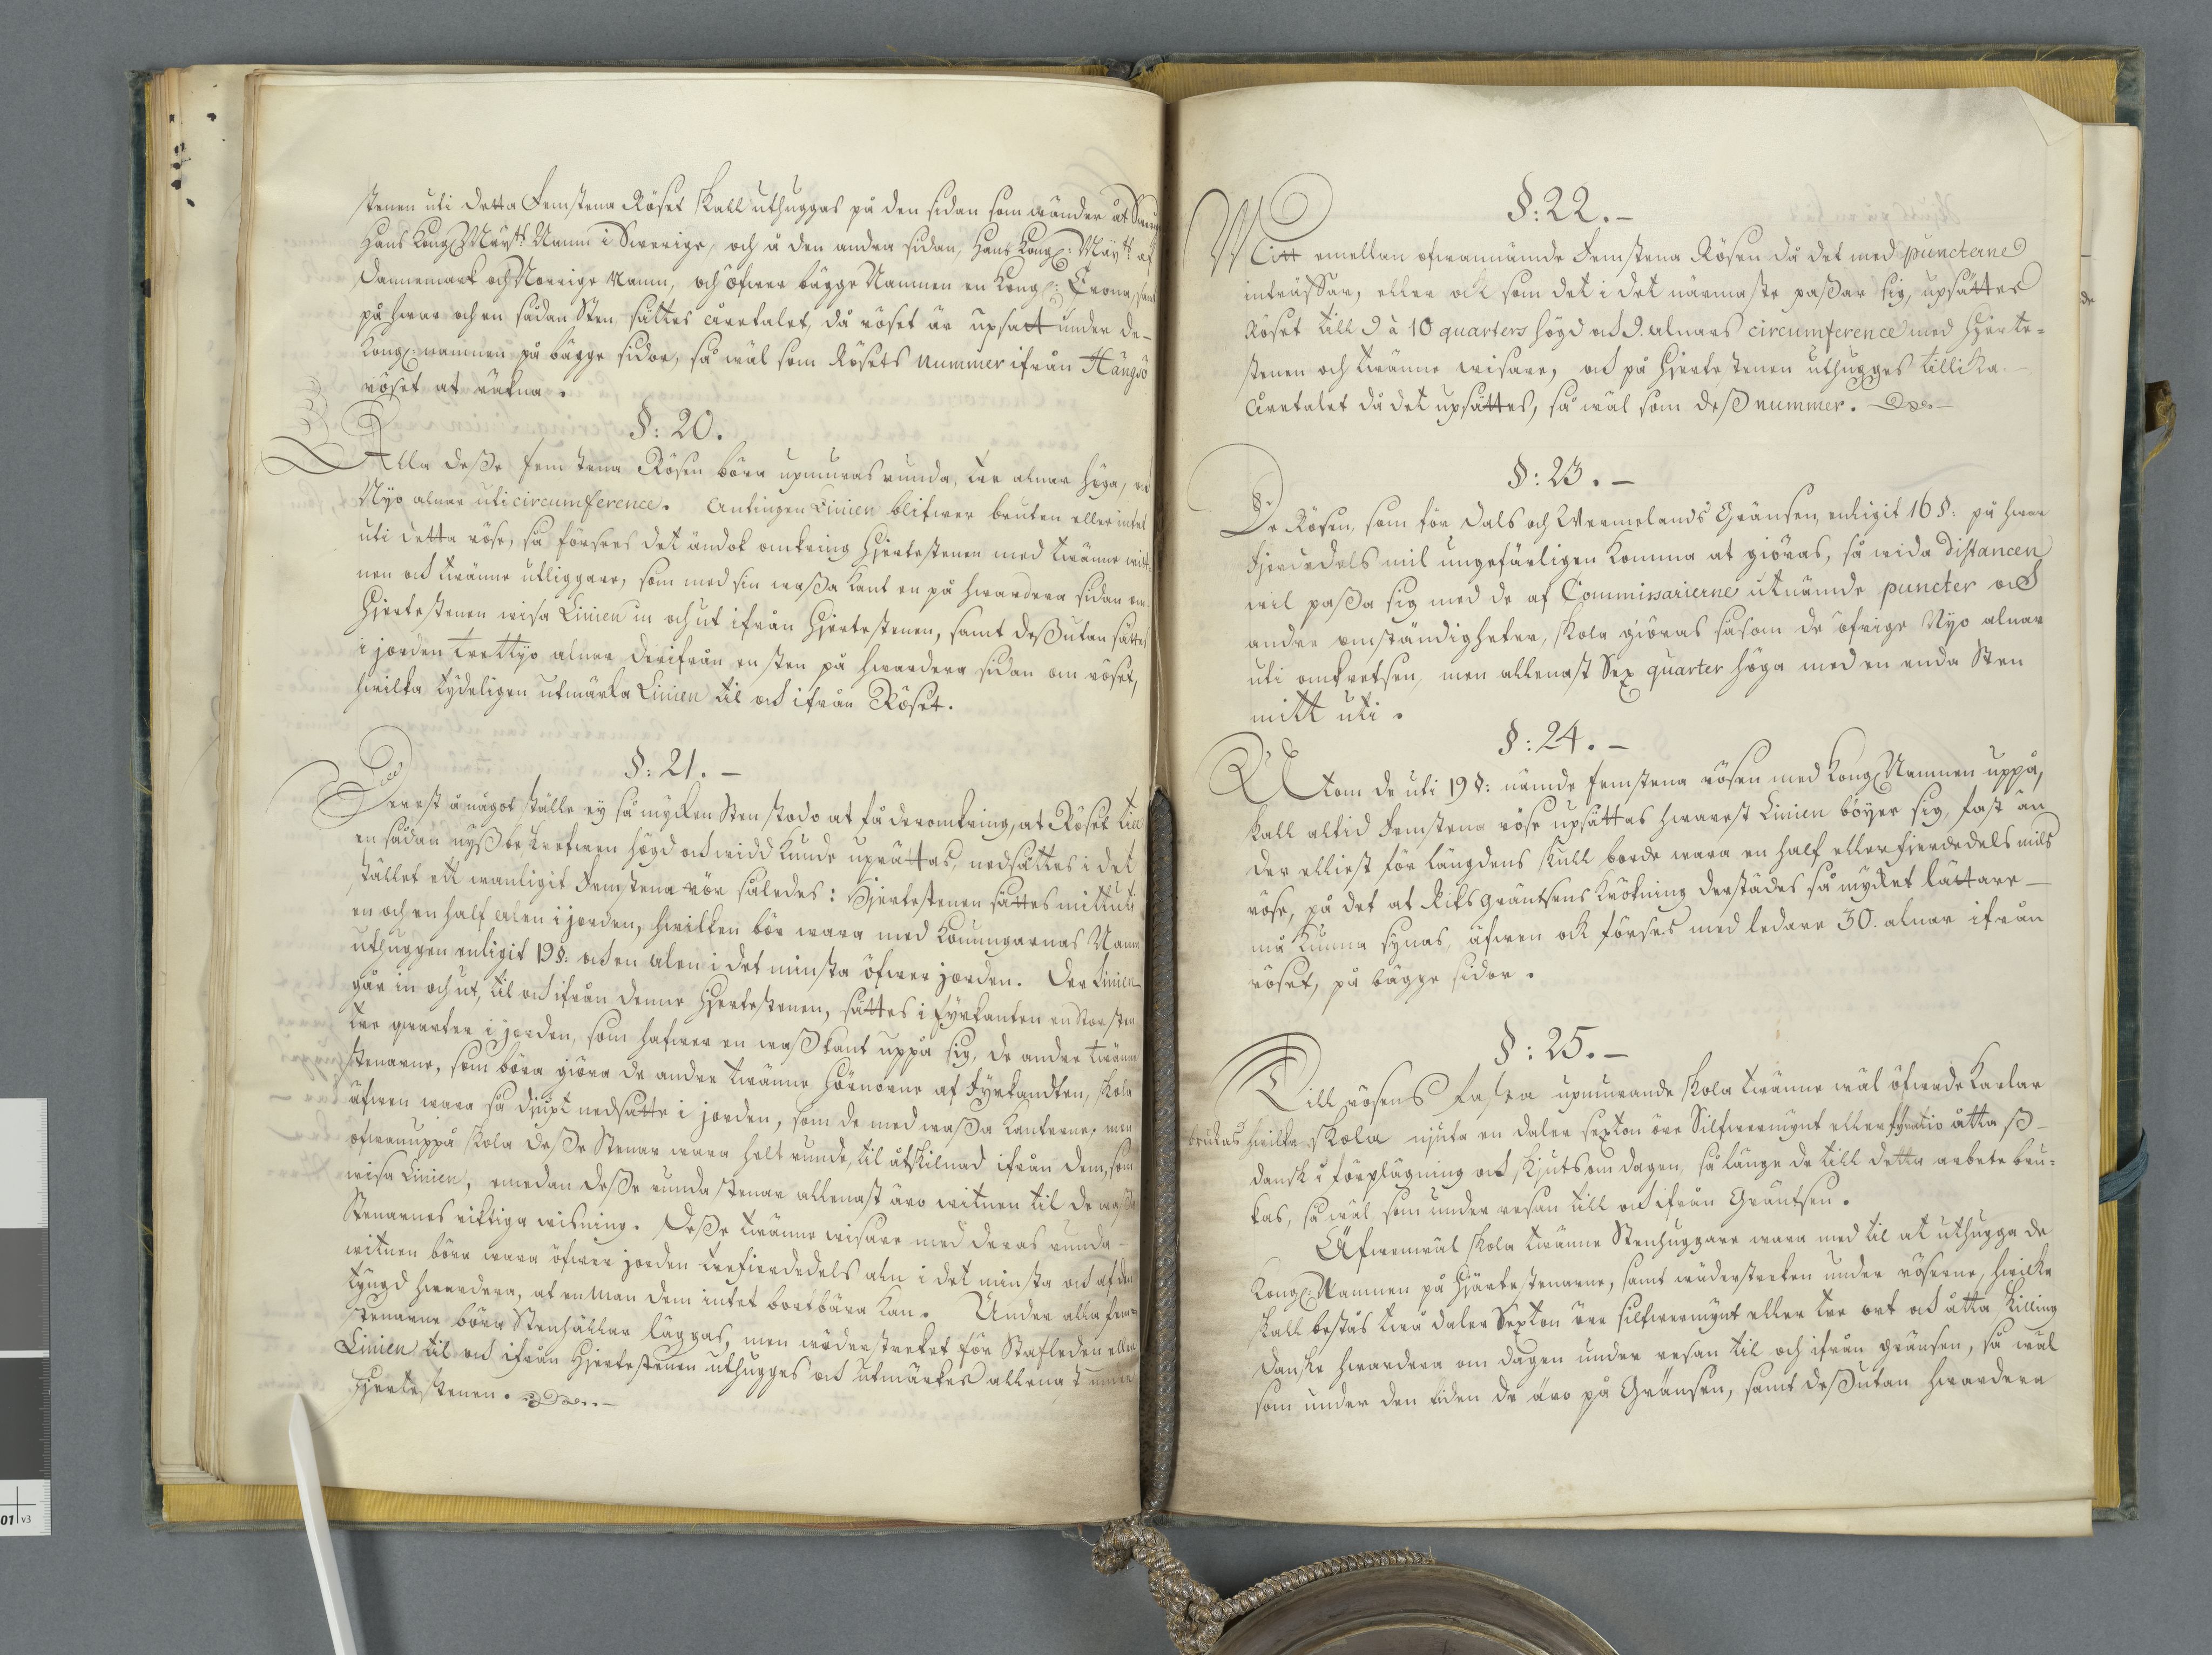 stenen uti detta Femstena Röset skall uthuggas på den sidan som wänder åt
Hans Kongl: Maÿ:ts Namn i Swerige, och å den andra sidan, Hans Kongl: Maÿ:ts af
Dannemark och Norrige Namn, och öfwer bägge Namnen en Kongl: Crona, samt
på hwar och en sådan Sten sättes åretalet, då röset är upsatt under de
Kongl: namnen på bägge sidor, så wäl som Rösets nummer ifrån
röset at räkna.
§: 20.
Alla desse fem stena Rösen böra upmuras runda, tre alnar höga, och
Nijo alnar uti circumference. Antingen Linien blifwer bruten eller intet
uti detta röse, så förses det ändok omkring Hjertestenen med twänne witt-
nen och twänne utliggare, som med sin wassa kant en på hwardera sidan om
Hjertestenen wisa Linien in och ut ifrån Hjertestenen, samt dessutan sättes
i jorden trettijo alnar derifrån en sten på hwardera sidan om röset,
hwilka tydeligen utmärka Linien til och ifrån Röset.
§: 21.
Derest å något ställe ej så mycken Sten stodo at få deromkring, at Röset till
en sådan nyss beskrefwen högd och widd kunde uprättas, nedsättes i det
stället ett wanligit Femstena rör således: Hjertestenen sättes mitt uti
en och en half alen i jorden, hwilken bör wara med Konungarnas Namn
uthuggen enligit 19 §: och en alen i det minsta öfwer jorden. Der Linien
går in och ut, til och ifrån denne Hjertestenen, sättes i fyrkanten en stor sten
tre quarter i jorden, som hafwer en wass kant uppå sig, de andre twänne
stenarne, som böra giöra de andre twänne hörnorne af Fyrkandten, skola
äfwen wara så djupt nedsatte i jorden, som de med wassa kanterne, men
ofwanuppå skola desse Stenar wara helt runde, til åtskilnad ifrån dem, som
wisa Linien, emedan desse runda stenar allenast äro witnen til de wassa
Stenarnes riktiga wisning. Desse twänne wisare med deras runda
witnen böra wara öfwer jorden trefierdedels aln i det minsta och af den
tyngd hwardera, at en man dem intet bortbära kan. Under alla fem
stenarne böra Stenhällar läggas, men wäderstreket för Stafleden eller
Linien til och ifrån Hjertestenen uthugges och utmärkes allenast under
Hjertestenen.
§: 22.
Mitt emellan ofwannämde Femstena Rösen då det med puncterne
inträffar, eller ock som det i det närmaste passar sig, upsättes
Röset till 9 à 10 quarters högd och 9. alnars circumference med Hjerte-
stenen och twänne wisare, och på Hjertestenen uthugges tillika
åretalet då det upsättes, så wäl som dess nummer.
§: 23.
De Rösen, som för Dals och Wermelands Gränsen, enligit 16 §: på hwar
Fjerdedels mil ungefärligen komma at giöras, så wida distancen
wil passa sig med de af Commissarierne utnämde puncter och
andre omständigheter, skola giöras såsom de öfrige Nijo alnar
uti omkretsen, men allenast Sex quarter höga med en enda Sten
mitt uti.
§: 24.
Utom de uti 19 §: nämde femstena rösen med Kongl: Namnen uppå,
skall altid Femstena röse upsättas hwarest Linien böyer sig, fast än
der elliest för längdens skull borde wara en half eller fierdedels mils
röse, på det at Riks gräntsens krökning derstädes så mycket lättare
må kunna synas, äfwen ock förses med ledare 30. alnar ifrån
röset, på bägge sidor.
§: 25.
Till rösens fasta upmurande skola twänne wäl öfwade Karlar
brukas hwilka skola njuta en daler sexton öre Silfwermynt eller fyratio åtta ß
dansk i förplägning och skjuts om dagen, så länge de till detta arbete bru-
kas, så wäl som under resan till och ifrån Gräntsen.
Äfwenwäl skola twänne Stenhuggare wara med til at uthugga de
Kongl: Namnen på Hjärtestenarne, samt wäderstreken under röserne, hwilka
skall bestås twå daler Sexton öre silfwermynt eller tre ort och åtta skilling
danske hwardera om dagen under resan til och ifrån gränsen, så wäl
som under den tiden de äro på Gränsen, samt dessutan hwardera